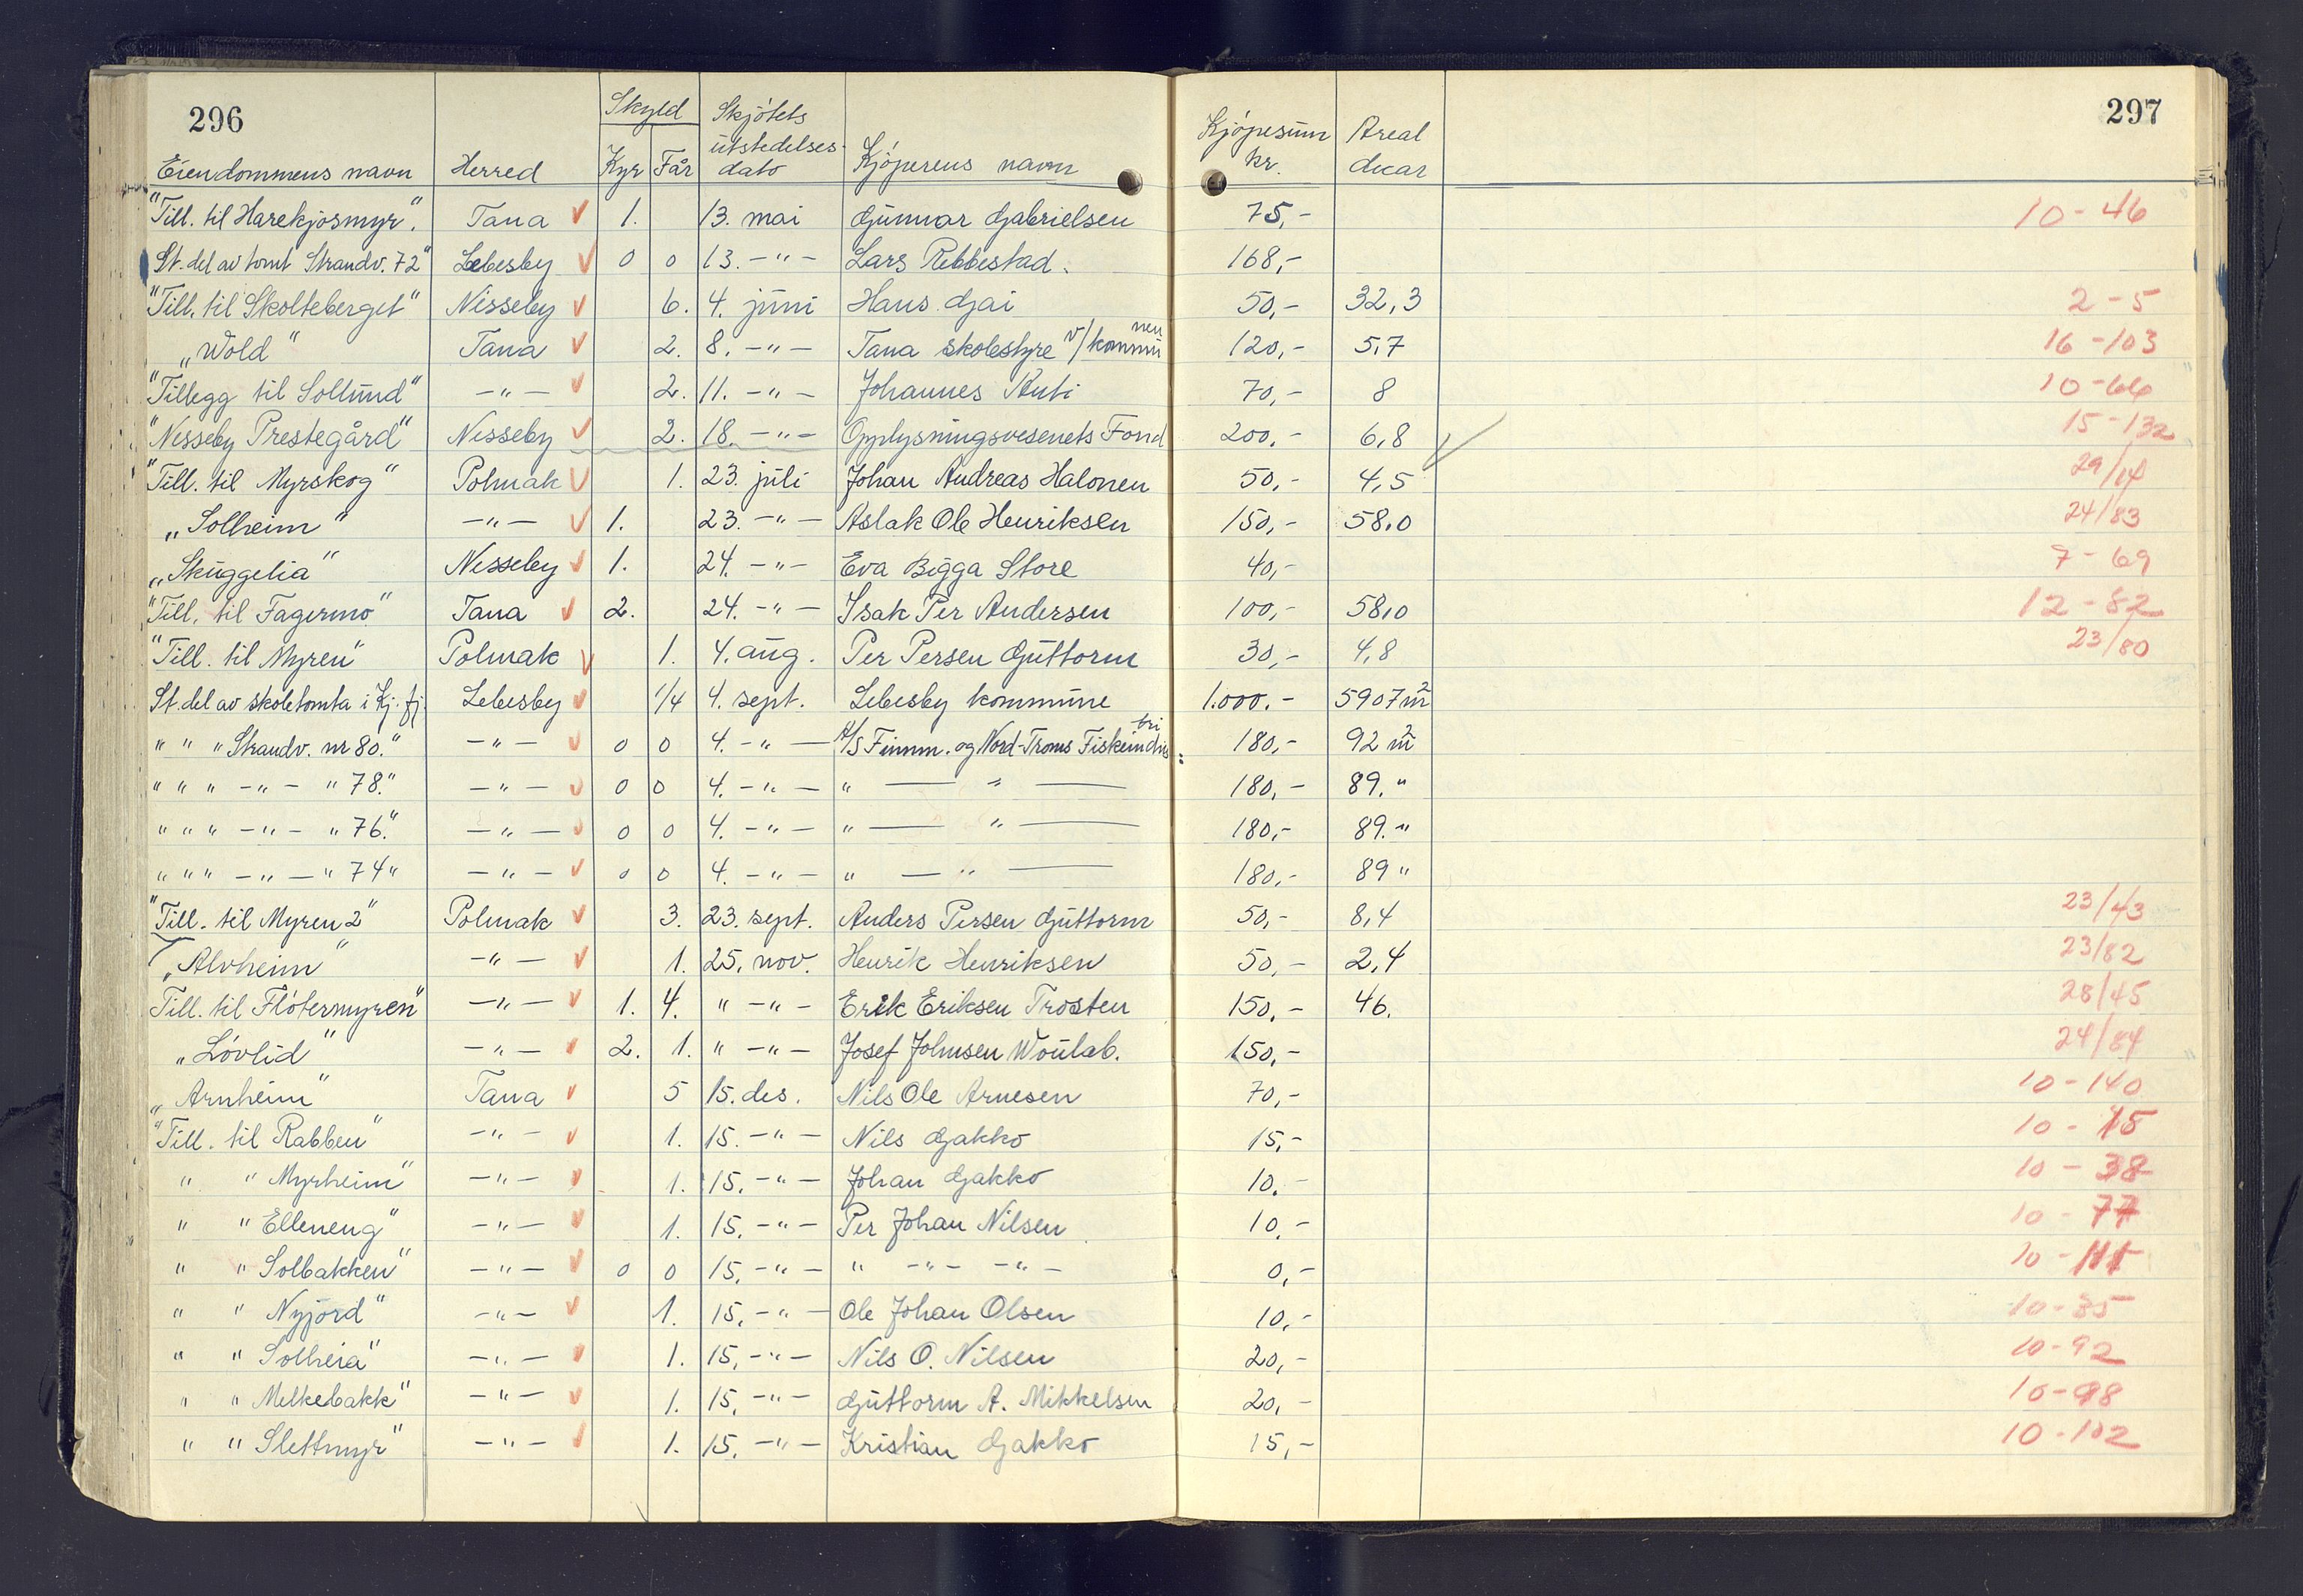 296
297
Skyld Skjötets
utstedelses-
Kjöpesum Areal
Eiendommens navn Herred Kyr Får dato Kjöperens navn kr. decar
"Till. til Harekjosmyr". Tana V 1. 13. mai Gunnar Gabrielsen 75,- 10-46
St. del av tomt Strandv. 72" Lebesby V 0 0 13. -"- Lars Rebbestad. 168,-
"Till. til Skolteberget" Nesseby V 6. 4. juni Hans Gai 50,- 32,3 2-5
"Wold" Tana V 2. 8. -"- Tana skolestyre v/kommunen 120,- 5,7 16-103
"Tillegg til Sollund" -"- V 2. 11. -"- Johannes Anti 70,- 8 10-66
"Nesseby Prestegård" Nesseby V 2. 18. -"- Opplysningsvesenets Fond 200,- 6,8 15-132
"Till. til Myrskog" Polmak V 1. 23. juli Johan Andreas Halonen 50,- 4,5 29/14
"Solheim" -"- V 1. 23. -"- Aslak Ole Henriksen 150,- 58,0 24/83
"Skuggelia" Nesseby V 1. 24. -"- Eva Bigga Store 40,- 7-69
"Till. til Fagermo" Tana V 2. 24. -"- Isak Per Andersen 100,- 58,0 12-82
"Till. til Myren" Polmak V 1. 4. aug. Per Persen Guttorm 30,- 4,8 23/80
St. del av skoletomta i Kj.fj. Lebesby V 1/4 4. sept. Lebesby kommune 1.000.- 5907 m2
" " " Strandv. nr 80." -"- V 0 0 4. -"- A/S Finnm. og Nord-Troms Fiskeindustri 180,- 92 m2
" " " -"- " 78." -"- V 0 0 4. -"- " — " — 180,- 89. "
" " " -"- " 76." -"- V 0 0 4. -"- " — " — 180,- 89. "
" " " -"- " 74" -"- V 0 0 4. -"- " — " — 180,- 89 "
"Till. til Myren 2" Polmak V 3. 23. sept. Anders Persen Guttorm 50,- 8,4 23/43
"Alvheim" -"- V 1. 25. nov. Henrik Henriksen 50,- 2,4 23/82
Till. til Flötermyren" -"- V 1. 4. " -"- Erik Eriksen Trosten 150,- 46. 28/45
"Lövlid" -"- V 2. 1. " -"- Josef Johnsen Woulab. 150,- 24/84
"Arnheim" Tana V 5 15. des. Nils Ole Arnesen 70,- 10-140
"Till. til Rabben" -"- V 1. 15. -"- Nils Gakko 15,- 10-15
" " Myrheim" -"- V 1. 15. -"- Johan Gakko 10.- 10-38
" " Elleneng" -"- V 1. 15. -"- Per Johan Nilsen 10,- 10-77
" " Solbakken" -"- V 0 0 15. -"- " -"- -"- 0,- 10-111
" " Nyjord" -"- V 1. 15. -"- Ole Johan Olsen 10,- 10-85
" " Solheia" -"- V 1. 15. -"- Nils O. Nilsen 20,- 10-92
" " Melkebakk" -"- V 1. 15. -"- Guttorm A. Mikkelsen 20,- 10-98
" " Slettmyr" -"- V 1. 15. -"- Kristian Gakko 15,- 10-102